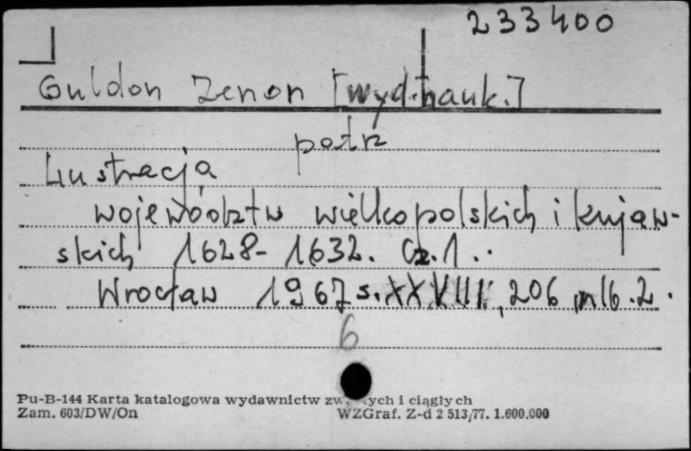 233400
Guldon Zenon [wyd. nauk.]
patrz
Lustracja
województw wielkopolskich i kujaw-
skich 1628-1632. Cz. 1..
Wrocław 1967 s. XXVIII, 206, nlb. 2.
6
Pu-B-144 Karta katalogowa wydawnictw i ciągłych
Zam. 603/DW/On WZGraf. Z-d 2 513/77. 1.600.000